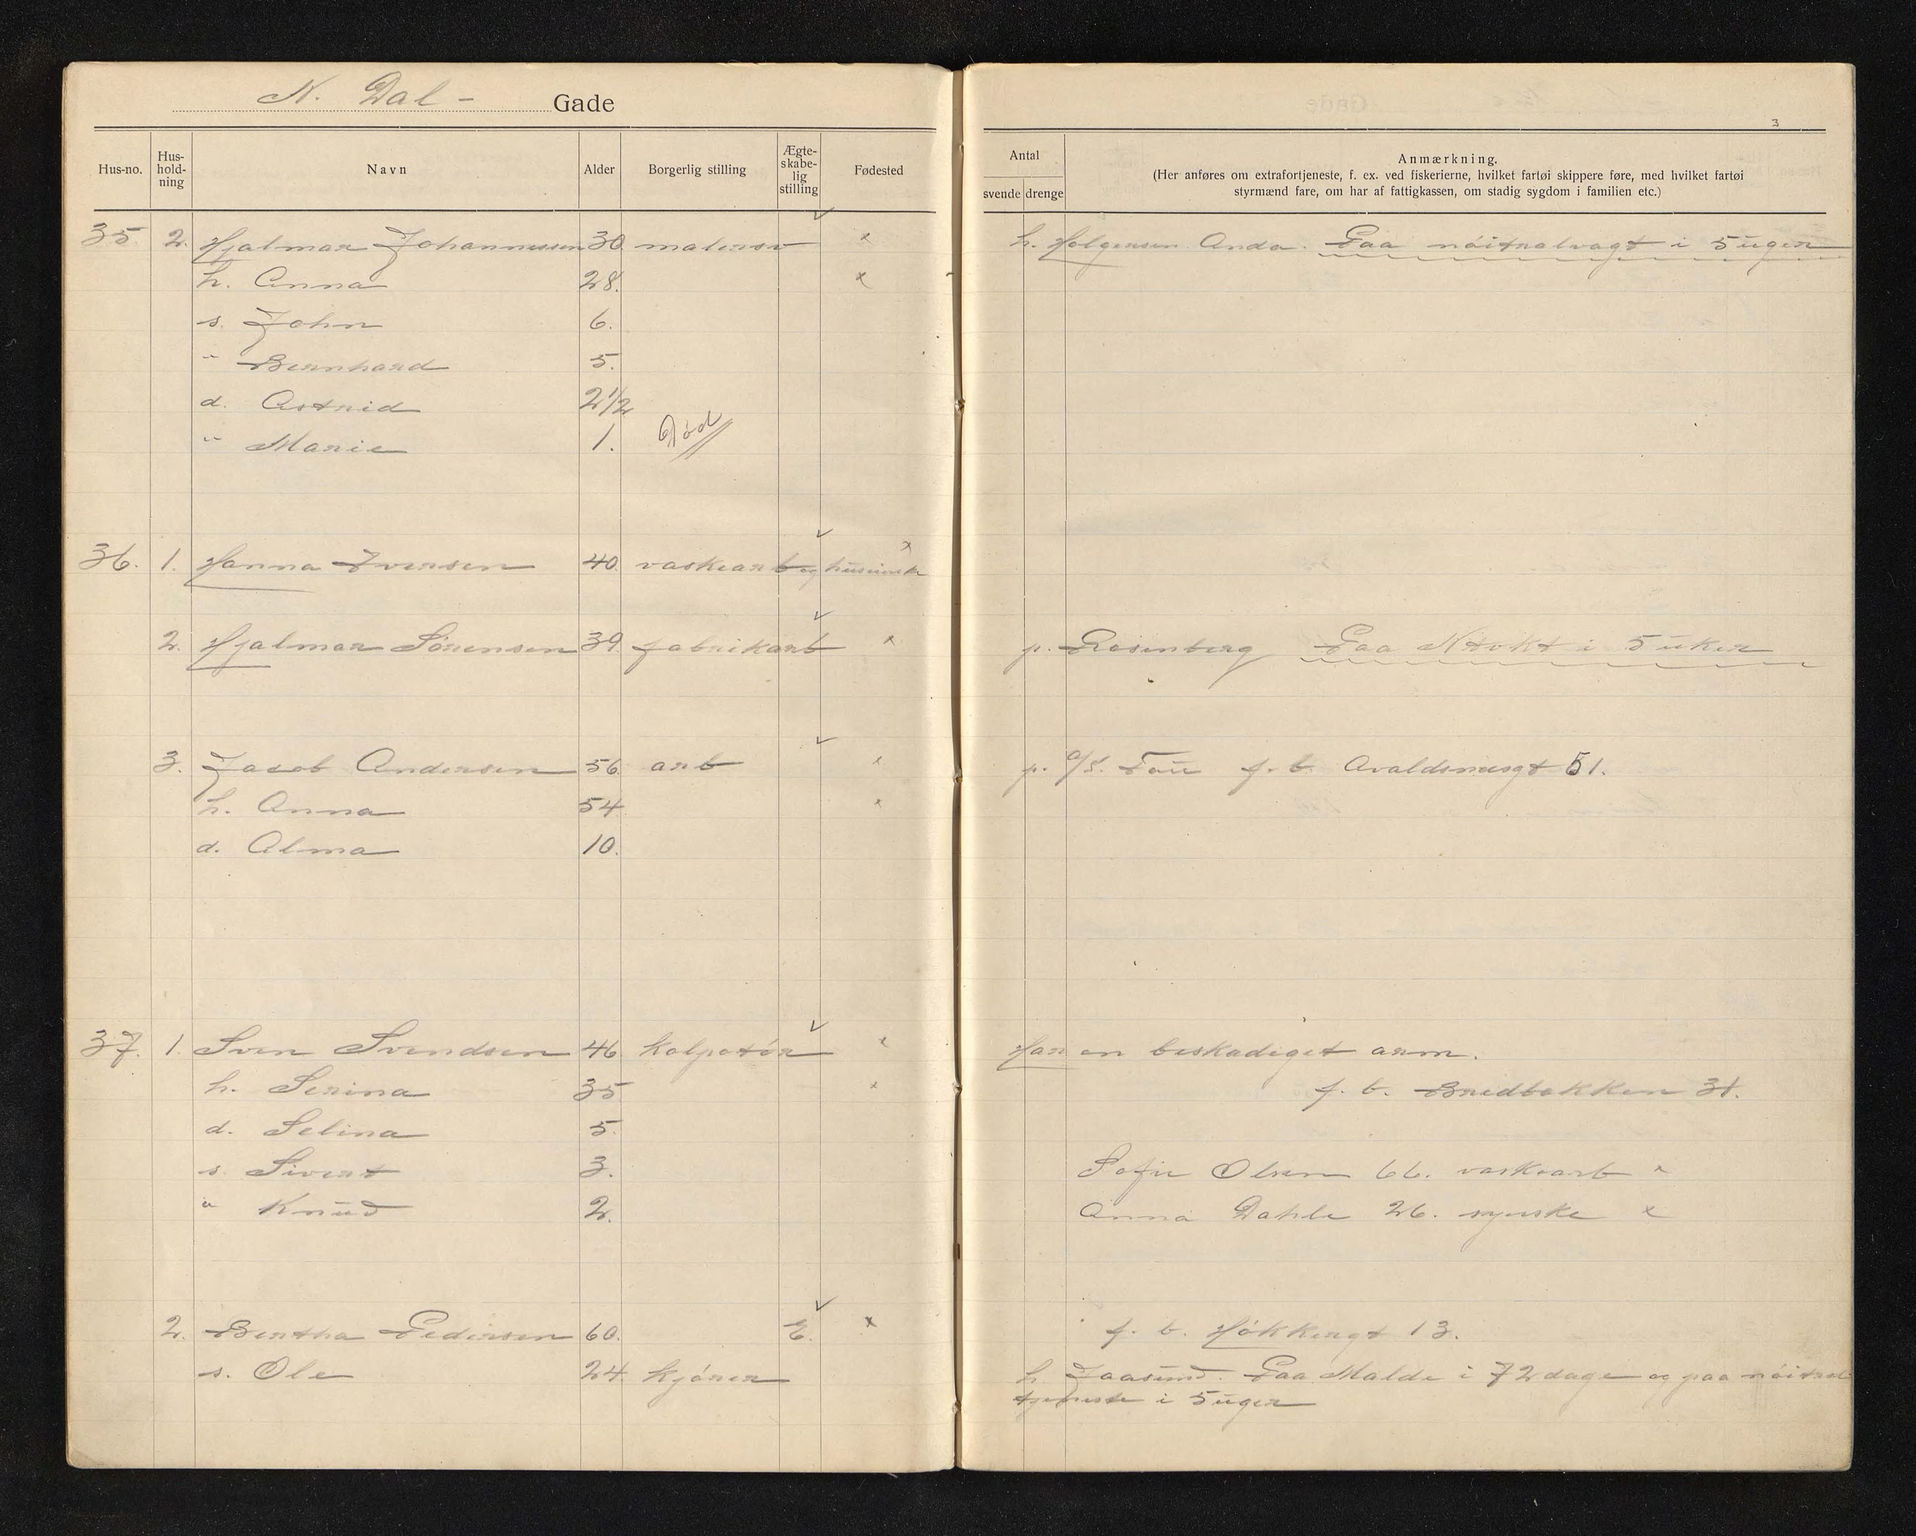 N. Dal- Gade
3
Hus-no. Hus-hold-ning Navn Alder Borgerlig stilling Ægte-skabe-lig stilling Fødested
Antal svende drenge Anmærkning.
(Her anføres om extrafortjeneste, f. ex. ved fiskerierne, hvilket fartøi skippere føre, med hvilket fartøi
styrmænd fare, om har af fattigkassen, om stadig sygdom i familien etc.)
35 2. Hjalmar Johannessen 30. malersv x h. Holgersen Anda. Paa nøitralvagt i 5 uger
h. Anna 28. x
s. John 6.
" Bernhard 5.
d. Astrid 2 1/2
" Marie 1. Død
36. 1. Hanna Iversen 40. vaskearb og x
2. Hjalmar Sørensen 39. fabrikarb x p. Rosenberg Paa Ntvkt i 5 uker
3. Jacob Andersen 56. arb x p. A/S. Tou f. b. Avaldsnesgt 51.
h. Anna 54. x
d. Alma 10.
37. 1. Sven Svendsen 46. kolpotør x Har en beskadiget arm.
h. Serina 35 x f. b. Bredbakken 31.
d. Selina 5.
s. Sivert 3. Sofie Olsen 66. vaskearb x
" Knud 2. Anna Dahle 26. syerske x
2. Bertha Pedersen 60. E. x f. b. Høkkergt 13.
s. Ole 24. kjører h Jaasund. Paa Malde i 72 dage og paa nøitral
tjeneste i 5 uger